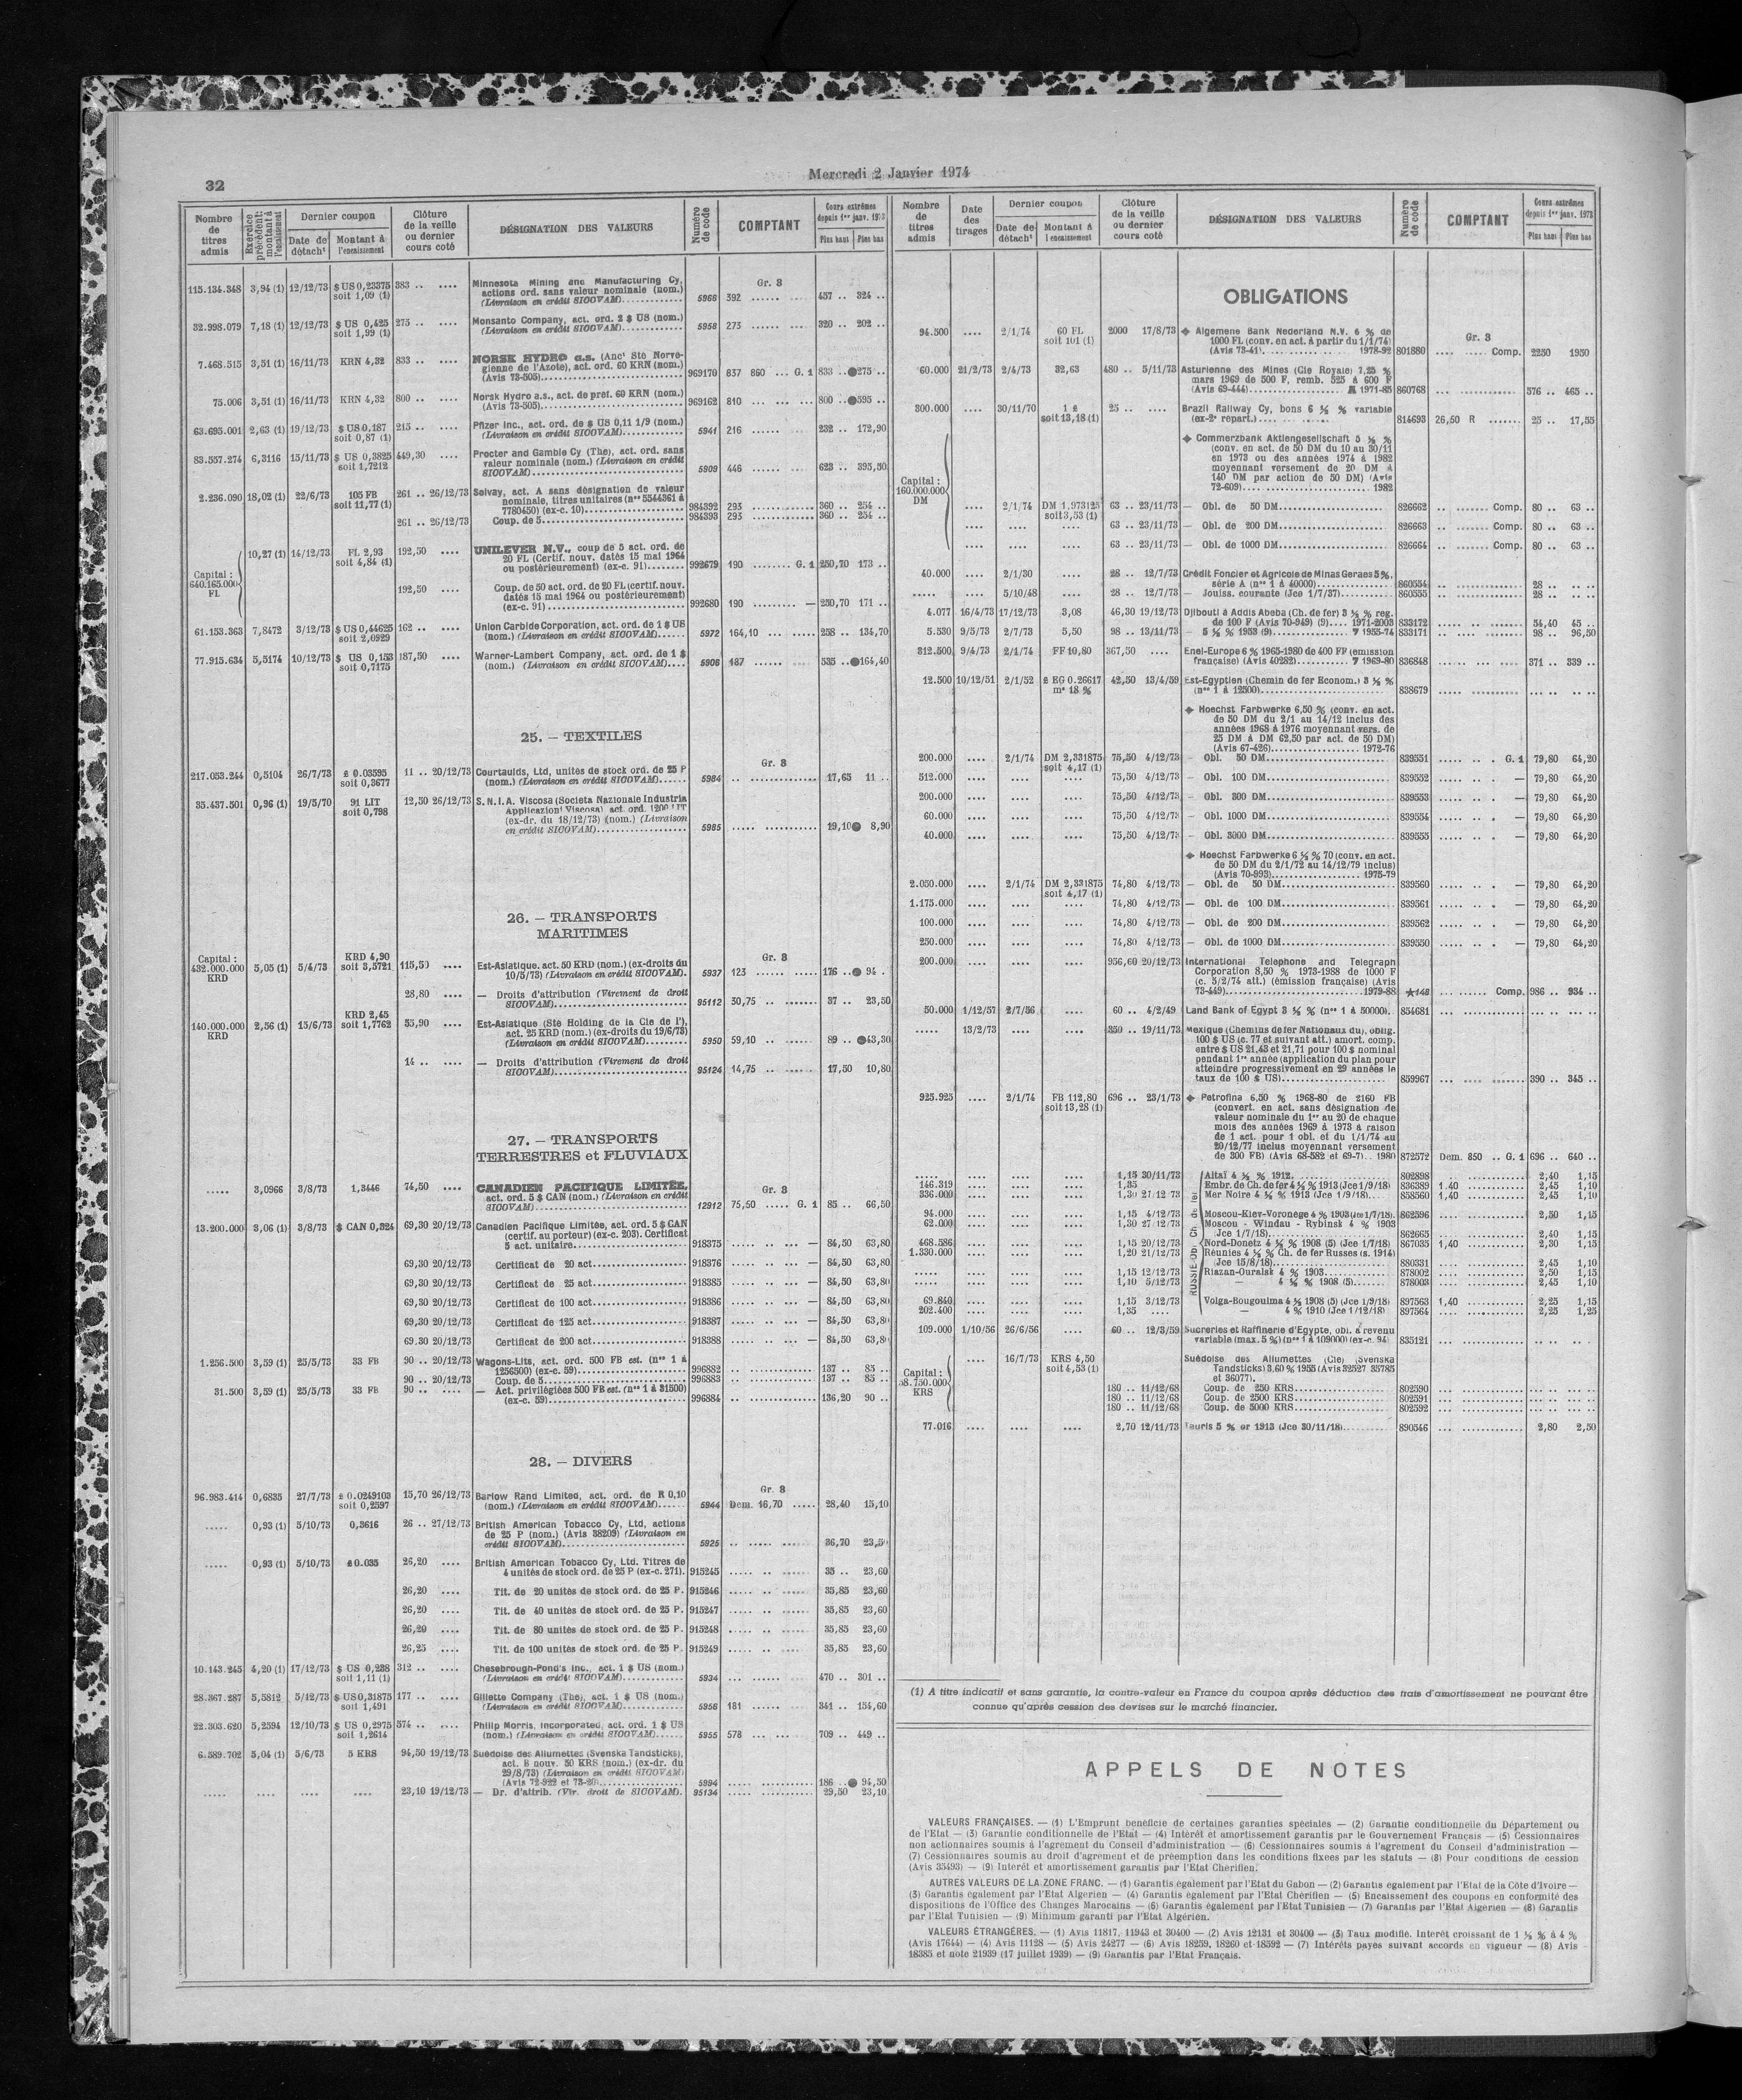 32
Mercredi 2 Janvier 1974
Nombre de titres admis
Exercice précédent: montant à l'encaissement
Dernier coupon
Date de détach^t
Montant à l'encaissement
Clôture de la veille ou dernier cours coté
DÉSIGNATION DES VALEURS
Numéro de code
COMPTANT
Cours extrêmes depuis 1er janv. 1973
Plus haut
Plus bas
Gr. 3
115.134.348 3,94 (1) 12/12/73 $ US 0,23375 383 .. .... Minnesota Mining and Manufacturing Cy,
soit 1,09 (1) actions ord. sans valeur nominale (nom.)
(Livraison en crédit SICOVAM) 5966 392 457 .. 324 ..
32.998.079 7,18 (1) 12/12/73 $ US 0,425 275 .. .... Monsanto Company, act. ord. 2 $ US (nom.)
soit 1,99 (1) (Livraison en crédit SICOVAM) 5958 273 320 .. 202 ..
7.468.515 3,51 (1) 16/11/73 KRN 4,32 833 .. .... NORSK HYDRO a.s. (Anct Sté Norvé-
gienne de l'Azote), act. ord. 60 KRN (nom.)
(Avis 73-505) 969170 837 860 ... G. 1 833 .. ●275 ..
75.006 3,51 (1) 16/11/73 KRN 4,32 800 .. .... Norsk Hydro a.s., act. de préf. 60 KRN (nom.)
(Avis 73-505) 969162 810 800 .. ●595 ..
63.695.001 2,63 (1) 19/12/73 $ US 0,187 215 .. .... Pfizer Inc., act. ord. de $ US 0,11 1/9 (nom.)
soit 0,87 (1) (Livraison en crédit SICOVAM) 5941 216 232 .. 172,90
83.557.274 6,3116 15/11/73 $ US 0,3825 449,30 .... Procter and Gamble Cy (The), act. ord. sans
soit 1,7212 valeur nominale (nom.) (Livraison en crédit
SICOVAM) 5909 446 623 .. 395,50
2.236.090 18,02 (1) 22/6/73 105 FB 261 .. 26/12/73 Solvay, act. A sans désignation de valeur
soit 11,77 (1) nominale, titres unitaires (nos 5544361 à
7780450) (ex-c. 10) 984392 293 360 .. 254 ..
261 .. 26/12/73 Coup. de 5 984393 293 360 .. 254 ..
Capital : 640.165.000 FL
10,27 (1) 14/12/73 FL 2,93 192,50 .... UNILEVER N.V., coup de 5 act. ord. de
soit 4,84 (1) 20 FL (Certif. nouv. datés 15 mai 1964
ou postérieurement) (ex-c. 91) 992679 190 G. 1 250,70 173 ..
192,50 .... Coup. de 50 act. ord. de 20 FL (certif. nouv.
datés 15 mai 1964 ou postérieurement)
(ex-c. 91) 992680 190 — 250,70 171 ..
61.153.363 7,8472 3/12/73 $ US 0,44625 162 .. .... Union Carbide Corporation, act. ord. de 1 $ US
soit 2,0929 (nom.) (Livraison en crédit SICOVAM) 5972 164,10 258 .. 134,70
77.915.634 5,5174 10/12/73 $ US 0,153 187,50 .... Warner-Lambert Company, act. ord. de 1 $
soit 0,7175 (nom.) (Livraison en crédit SICOVAM) 5906 187 535 .. ●164,40
25. — TEXTILES
Gr. 3
217.053.244 0,5104 26/7/73 £ 0.03595 11 .. 20/12/73 Courtaulds, Ltd, unités de stock ord. de 25 P
soit 0,3677 (nom.) (Livraison en crédit SICOVAM) 5984 17,65 11 ..
35.437.501 0,96 (1) 19/5/70 91 LIT 12,50 26/12/73 S.N.I.A. Viscosa (Societa Nazionale Industria
soit 0,798 Applicazioni Viscosa) act. ord. 1200 LIT
(ex-dr. du 18/12/73) (nom.) (Livraison
en crédit SICOVAM) 5985 19,10 ● 8,90
26. — TRANSPORTS
MARITIMES
Gr. 3
Capital : 432.000.000 KRD 5,05 (1) 5/4/73 KRD 4,90 soit 3,5721 115,50 .... Est-Asiatique. act. 50 KRD (nom.) (ex-droits du
10/5/73) (Livraison en crédit SICOVAM). 5937 123 176 .. ● 94 ..
28,80 .... — Droits d'attribution (Virement de droit
SICOVAM) 95112 30,75 37 .. 23,50
140.000.000 KRD 2,56 (1) 15/6/73 KRD 2,45 soit 1,7762 55,90 .... Est-Asiatique (Sté Holding de la Cie de l'),
act. 25 KRD (nom.) (ex-droits du 19/6/73)
(Livraison en crédit SICOVAM) 5950 59,10 89 .. ●43,30
14 .. .... — Droits d'attribution (Virement de droit
SICOVAM) 95124 14,75 17,50 10,80
27. — TRANSPORTS
TERRESTRES et FLUVIAUX
Gr. 3
..... 3,0966 3/8/73 1,3446 74,50 .... CANADIEN PACIFIQUE LIMITÉE,
act. ord. 5 $ CAN (nom.) (Livraison en crédit
SICOVAM) 12912 75,50 G. 1 85 .. 66,50
13.200.000 3,06 (1) 3/8/73 $ CAN 0,324 69,30 20/12/73 Canadien Pacifique Limitée, act. ord. 5 $ CAN
(certif. au porteur) (ex-c. 203). Certificat
5 act. unitaire 918375 — 84,50 63,80
69,30 20/12/73 Certificat de 20 act. 918376 — 84,50 63,80
69,30 20/12/73 Certificat de 25 act. 918385 — 84,50 63,80
69,30 20/12/73 Certificat de 100 act. 918386 — 84,50 63,80
69,30 20/12/73 Certificat de 125 act. 918387 — 84,50 63,80
69,30 20/12/73 Certificat de 200 act. 918388 — 84,50 63,80
1.256.500 3,59 (1) 25/5/73 33 FB 90 .. 20/12/73 Wagons-Lits, act. ord. 500 FB est. (nos 1 à
1256500) (ex-c. 59) 996882 137 .. 85 ..
90 .. 20/12/73 Coup. de 5 996883 137 .. 85 ..
31.500 3,59 (1) 25/5/73 33 FB 90 .. .... — Act. privilégiées 500 FB est. (nos 1 à 31500)
(ex-c. 59) 996884 136,20 90 ..
28. — DIVERS
Gr. 3
96.983.414 0,6835 27/7/73 £ 0.0249103 15,70 26/12/73 Barlow Rand Limited, act. ord. de R 0,10
soit 0,2597 (nom.) (Livraison en crédit SICOVAM) 5944 Dem. 16,70 28,40 15,10
..... 0,93 (1) 5/10/73 0,3616 26 .. 27/12/73 British American Tobacco Cy, Ltd, actions
de 25 P (nom.) (Avis 38209) (Livraison en
crédit SICOVAM) 5925 36,70 23,50
..... 0,93 (1) 5/10/73 £ 0.035 26,20 .... British American Tobacco Cy, Ltd. Titres de
4 unités de stock ord. de 25 P (ex-c. 271). 915245 35 .. 23,60
26,20 .... Tit. de 20 unités de stock ord. de 25 P. 915246 35,85 23,60
26,20 .... Tit. de 40 unités de stock ord. de 25 P. 915247 35,85 23,60
26,20 .... Tit. de 80 unités de stock ord. de 25 P. 915248 35,85 23,60
26,25 .... Tit. de 100 unités de stock ord. de 25 P. 915249 35,85 23,60
10.143.245 4,20 (1) 17/12/73 $ US 0,238 312 .. .... Chesebrough-Pond's Inc., act. 1 $ US (nom.)
soit 1,11 (1) (Livraison en crédit SICOVAM) 5934 470 .. 301 ..
28.367.287 5,5812 5/12/73 $ US 0,31875 177 .. .... Gillette Company (The), act. 1 $ US (nom.)
soit 1,491 (Livraison en crédit SICOVAM) 5956 181 341 .. 154,60
22.303.620 5,2594 12/10/73 $ US 0,2975 574 .. .... Philip Morris, Incorporated, act. ord. 1 $ US
soit 1,2614 (nom.) (Livraison en crédit SICOVAM) 5955 578 709 .. 449 ..
6.589.702 5,04 (1) 5/6/73 5 KRS 94,50 19/12/73 Suédoise des Allumettes (Svenska Tandsticks),
act. B nouv. 50 KRS (nom.) (ex-dr. du
29/8/73) (Livraison en crédit SICOVAM)
(Avis 72-922 et 73-20) 5994 186 .. ● 94,50
..... .... .... .... 23,10 19/12/73 — Dr. d'attrib. (Vir. droit de SICOVAM). 95134 29,50 23,10
Nombre de titres admis
Date des tirages
Dernier coupon
Date de détach^t
Montant à l'encaissement
Clôture de la veille ou dernier cours coté
DÉSIGNATION DES VALEURS
Numéro de code
COMPTANT
Cours extrêmes depuis 1er janv. 1973
Plus haut
Plus bas
OBLIGATIONS
Gr. 3
94.500 .... 2/1/74 60 FL 2000 17/8/73 ◆ Algemene Bank Nederland N.V. 6 % de
soit 101 (1) 1000 FL (conv. en act. à partir du 1/1/74)
(Avis 73-41) 1978-92 801880 Comp. 2250 1950
60.000 21/2/73 2/4/73 32,63 480 .. 5/11/73 Asturienne des Mines (Cie Royale) 7,25 %
mars 1969 de 500 F, remb. 525 à 600 F
(Avis 69-444) 1971-85 860768 576 .. 465 ..
300.000 .... 30/11/70 1 £ 25 .. .... Brazil Railway Cy, bons 6 ½ % variable
soit 13,18 (1) (ex-2e répart.) 814693 26,50 R 25 .. 17,55
◆ Commerzbank Aktiengesellschaft 5 ½ %
(conv. en act. de 50 DM du 10 au 30/11
en 1973 ou des années 1974 à 1982
moyennant versement de 20 DM à
140 DM par action de 50 DM) (Avis
72-609) 1982
Capital : 160.000.000 DM
.... 2/1/74 DM 1.973125 63 .. 23/11/73 — Obl. de 50 DM 826662 Comp. 80 .. 63 ..
soit 3,53 (1)
.... .... .... 63 .. 23/11/73 — Obl. de 200 DM 826663 Comp. 80 .. 63 ..
.... .... .... 63 .. 23/11/73 — Obl. de 1000 DM 826664 Comp. 80 .. 63 ..
40.000 .... 2/1/30 .... 28 .. 12/7/73 Crédit Foncier et Agricole de Minas Geraes 5 %,
série A (nos 1 à 40000) 860554 28 .. .. ..
..... 5/10/48 .... 28 .. 12/7/73 — Jouiss. courante (Jce 1/7/37) 860555 28 .. .. ..
4.077 16/4/73 17/12/73 3,08 46,30 19/12/73 Djibouti à Addis Abeba (Ch. de fer) 3 ½ % reg.
de 100 F (Avis 70-949) (9) 1971-2003 833172 54,40 45 ..
5.530 9/5/73 2/7/73 5,50 98 .. 13/11/73 — 5 ½ % 1953 (9) 1955-74 833171 98 .. 96,50
312.500 9/4/73 2/1/74 FF 10,80 367,50 .... Enel-Europe 6 % 1965-1980 de 400 FF (émission
française) (Avis 40282) 1969-80 836848 371 .. 339 ..
12.500 10/12/51 2/1/52 £ EG 0.26617 42,50 13/4/59 Est-Egyptien (Chemin de fer Econom.) 3 ½ %
ms 18 % (nos 1 à 12500) 838679
◆ Hoechst Farbwerke 6,50 % (conv. en act.
de 50 DM du 2/1 au 14/12 inclus des
années 1968 à 1976 moyennant vers. de
25 DM à DM 62,50 par act. de 50 DM)
(Avis 67-426) 1972-76
200.000 .... 2/1/74 DM 2,331875 75,50 4/12/73 — Obl. 50 DM 839551 G. 1 79,80 64,20
soit 4,17 (1)
512.000 .... .... .... 75,50 4/12/73 — Obl. 100 DM 839552 — 79,80 64,20
200.000 .... .... .... 75,50 4/12/73 — Obl. 300 DM 839553 — 79,80 64,20
60.000 .... .... .... 75,50 4/12/73 — Obl. 1000 DM 839554 — 79,80 64,20
40.000 .... .... .... 75,50 4/12/73 — Obl. 3000 DM 839555 — 79,80 64,20
◆ Hoechst Farbwerke 6 ½ % 70 (conv. en act.
de 50 DM du 2/1/72 au 14/12/79 inclus)
(Avis 70-993) 1975-79
2.050.000 .... 2/1/74 DM 2,331875 74,80 4/12/73 — Obl. de 50 DM 839560 — 79,80 64,20
soit 4,17 (1)
1.175.000 .... .... .... 74,80 4/12/73 — Obl. de 100 DM 839561 — 79,80 64,20
100.000 .... .... .... 74,80 4/12/73 — Obl. de 200 DM 839562 — 79,80 64,20
250.000 .... .... .... 74,80 4/12/73 — Obl. de 1000 DM 839550 — 79,80 64,20
200.000 .... .... .... 956,60 20/12/73 International Telephone and Telegraph
Corporation 8,50 % 1973-1988 de 1000 F
(c. 5/2/74 att.) (émission française) (Avis
73-449) 1979-88 ★148 Comp. 986 .. 934 ..
50.000 1/12/51 2/7/56 .... 60 .. 4/2/49 Land Bank of Egypt 3 ½ % (nos 1 à 50000). 854681
..... 13/2/73 .... .... 350 .. 19/11/73 Mexique (Chemins de fer Nationaux du), oblig.
100 $ US (c. 77 et suivant att.) amort. comp.
entre $ US 21,43 et 21,71 pour 100 $ nominal
pendant 1re année (application du plan pour
atteindre progressivement en 29 années le
taux de 100 $ US) 859967 390 .. 345 ..
925.925 .... 2/1/74 FB 112,80 696 .. 23/1/73 ◆ Petrofina 6,50 % 1968-80 de 2160 FB
soit 13,28 (1) (convert. en act. sans désignation de
valeur nominale du 1er au 20 de chaque
mois des années 1969 à 1973 à raison
de 1 act. pour 1 obl. et du 1/1/74 au
20/12/77 inclus moyennant versement
de 300 FB) (Avis 68-582 et 69-7) 1980 872572 Dem. 850 .. G. 1 696 .. 640 ..
RUSSIE Ob. Ch. de fer
..... 1,15 30/11/73 Altaï 4 ½ % 1912. 802898 2,40 1,15
146.319 1,35 Embr. de Ch. de fer 4 ½ % 1913 (Jce 1/9/18) 836389 1.40 2,45 1,10
336.000 1,30 27/12/73 Mer Noire 4 ½ % 1913 (Jce 1/9/18) 858560 1,40 2,45 1,10
94.000 1,15 4/12/73 Moscou-Kiev-Voronège 4 % 1903 (Jce 1/7/18). 862596 2,50 1,15
62.000 1,30 27/12/73 Moscou - Windau - Rybinsk 4 % 1903
(Jce 1/7/18) 862665 2,40 1,15
468.586 1,15 20/12/73 Nord-Donetz 4 ½ % 1908 (5) (Jce 1/7/18) 867035 1,40 2,30 1,15
1.330.000 1,20 21/12/73 Réunies 4 ½ % Ch. de fer Russes (s. 1914)
(Jce 15/8/18) 880331 2,45 1,10
..... 1,15 12/12/73 Riazan-Ouralsk 4 % 1903 878002 2,50 1,15
..... 1,10 5/12/73 — 4 ½ % 1908 (5) 878003 2,45 1,10
69.840 1,15 3/12/73 Volga-Bougoulma 4 ½ 1908 (5) (Jce 1/9/18) 897563 1,40 2,25 1,15
202.400 1,35 .... — 4 % 1910 (Jce 1/12/18) 897564 2,25 1,25
109.000 1/10/56 26/6/56 .... 60 .. 12/3/59 Sucreries et Raffinerie d'Egypte, obl. à revenu
variable (max. 5 %) (nos 1 à 109000) (ex-c. 94) 835121
Capital : 58.750.000 KRS
.... 16/7/73 KRS 4,50 Suédoise des Allumettes (Cie) (Svenska
soit 4,53 (1) Tandsticks) 3,60 % 1955 (Avis 32527 35785
et 36077).
180 .. 11/12/68 Coup. de 250 KRS 802590
180 .. 11/12/68 Coup. de 2500 KRS 802591
180 .. 11/12/68 Coup. de 5000 KRS 802592
77.016 .... .... .... 2,70 12/11/73 Tauris 5 % or 1913 (Jce 30/11/18) 890546 2,80 2,50
(1) A titre indicatif et sans garantie, la contre-valeur en France du coupon après déduction des frais d'amortissement ne pouvant être
connue qu'après cession des devises sur le marché financier.
APPELS DE NOTES
VALEURS FRANÇAISES. — (1) L'Emprunt bénéficie de certaines garanties spéciales — (2) Garantie conditionnelle du Département ou
de l'Etat — (3) Garantie conditionnelle de l'Etat — (4) Intérêt et amortissement garantis par le Gouvernement Français — (5) Cessionnaires
non actionnaires soumis à l'agrément du Conseil d'administration — (6) Cessionnaires soumis à l'agrément du Conseil d'administration —
(7) Cessionnaires soumis au droit d'agrément et de préemption dans les conditions fixées par les statuts — (8) Pour conditions de cession
(Avis 35493) — (9) Intérêt et amortissement garantis par l'Etat Chérifien.
AUTRES VALEURS DE LA ZONE FRANC. — (1) Garantis également par l'Etat du Gabon — (2) Garantis également par l'Etat de la Côte d'Ivoire —
(3) Garantis également par l'Etat Algérien — (4) Garantis également par l'Etat Chérifien — (5) Encaissement des coupons en conformité des
dispositions de l'Office des Changes Marocains — (6) Garantis également par l'Etat Tunisien — (7) Garantis par l'Etat Algérien — (8) Garantis
par l'Etat Tunisien — (9) Minimum garanti par l'Etat Algérien.
VALEURS ÉTRANGÈRES. — (1) Avis 11817, 11943 et 30400 — (2) Avis 12131 et 30400 — (3) Taux modifié. Intérêt croissant de 1 ½ % à 4 %
(Avis 17644) — (4) Avis 11128 — (5) Avis 24277 — (6) Avis 18259, 18260 et 18592 — (7) Intérêts payés suivant accords en vigueur — (8) Avis
18385 et note 21939 (17 juillet 1939) — (9) Garantis par l'Etat Français.